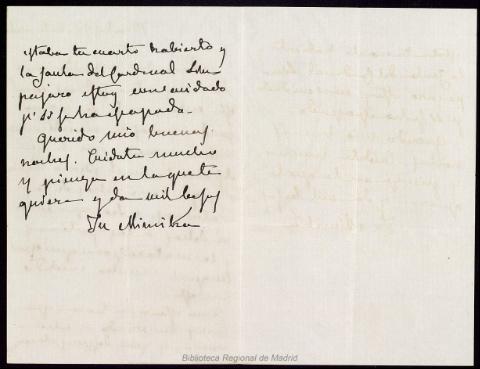 estaba tu cuarto habierto y
la jaula del Cardenal sin
pajaro estoy con cuidado
pr. si se ha escapado.
Querido mio buenas
noches. Cuidate mucho
y piensa en la que te
quiere y da mil besos
Tu Mimitza
Biblioteca Regional de Madrid